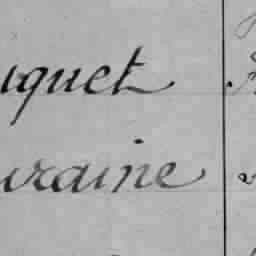 uquet
uraine